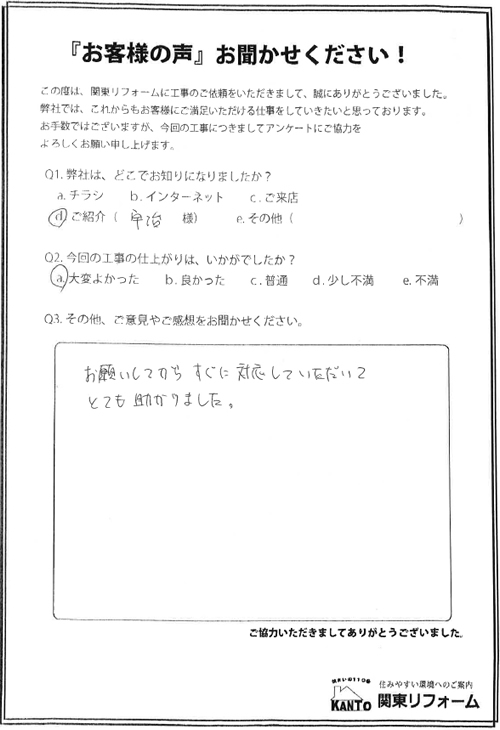 『お客様の声』お聞かせください！
この度は、関東リフォームに工事のご依頼をいただきまして、誠にありがとうございました。
弊社では、これからもお客様にご満足いただける仕事をしていきたいと思っております。
お手数ではございますが、今回の工事につきましてアンケートにご協力を
よろしくお願い申し上げます。
Q1. 弊社は、どこでお知りになりましたか？
a. チラシ　b. インターネット　c. ご来店
d. ご紹介（ 宇治 様）　e. その他（　　　）
Q2. 今回の工事の仕上がりは、いかがでしたか？
a. 大変よかった　b. 良かった　c. 普通　d. 少し不満　e. 不満
Q3. その他、ご意見やご感想をお聞かせください。
お願いしてから すぐに 対応していただいて
とても 助かりました。
ご協力いただきましてありがとうございました。
住まいの110番
KANTO
住みやすい環境へのご案内
関東リフォーム